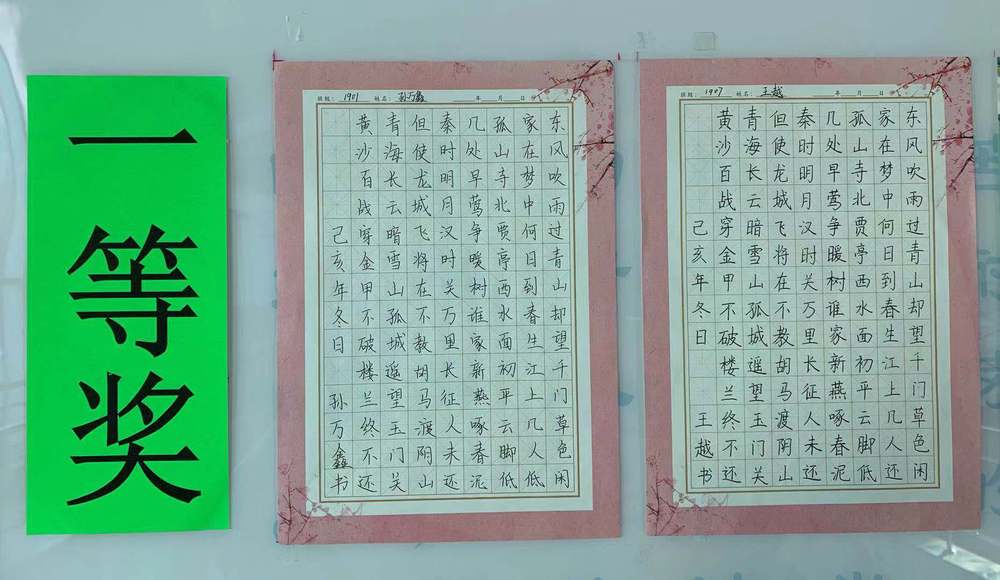 一等奖
班级： 1901 姓名： 孙万鑫 年 月 日
东风吹雨过青山却望千门草色闲
家在梦中何日到春生江上几人低
孤山寺北贾亭西水面初平云脚低
几处早莺争暖树谁家新燕啄春泥
秦时明月汉时关万里长征人未还
但使龙城飞将在不教胡马渡阴山
青海长云暗雪山孤城遥望玉门关
黄沙百战穿金甲不破楼兰终不还
己亥年冬日 孙万鑫书
班级： 1907 姓名： 王越 年 月 日
东风吹雨过青山却望千门草色闲
家在梦中何日到春生江上几人还
孤山寺北贾亭西水面初平云脚低
几处早莺争暖树谁家新燕啄春泥
秦时明月汉时关万里长征人未还
但使龙城飞将在不教胡马渡阴山
青海长云暗雪山孤城遥望玉门关
黄沙百战穿金甲不破楼兰终不还
己亥年冬日 王越书